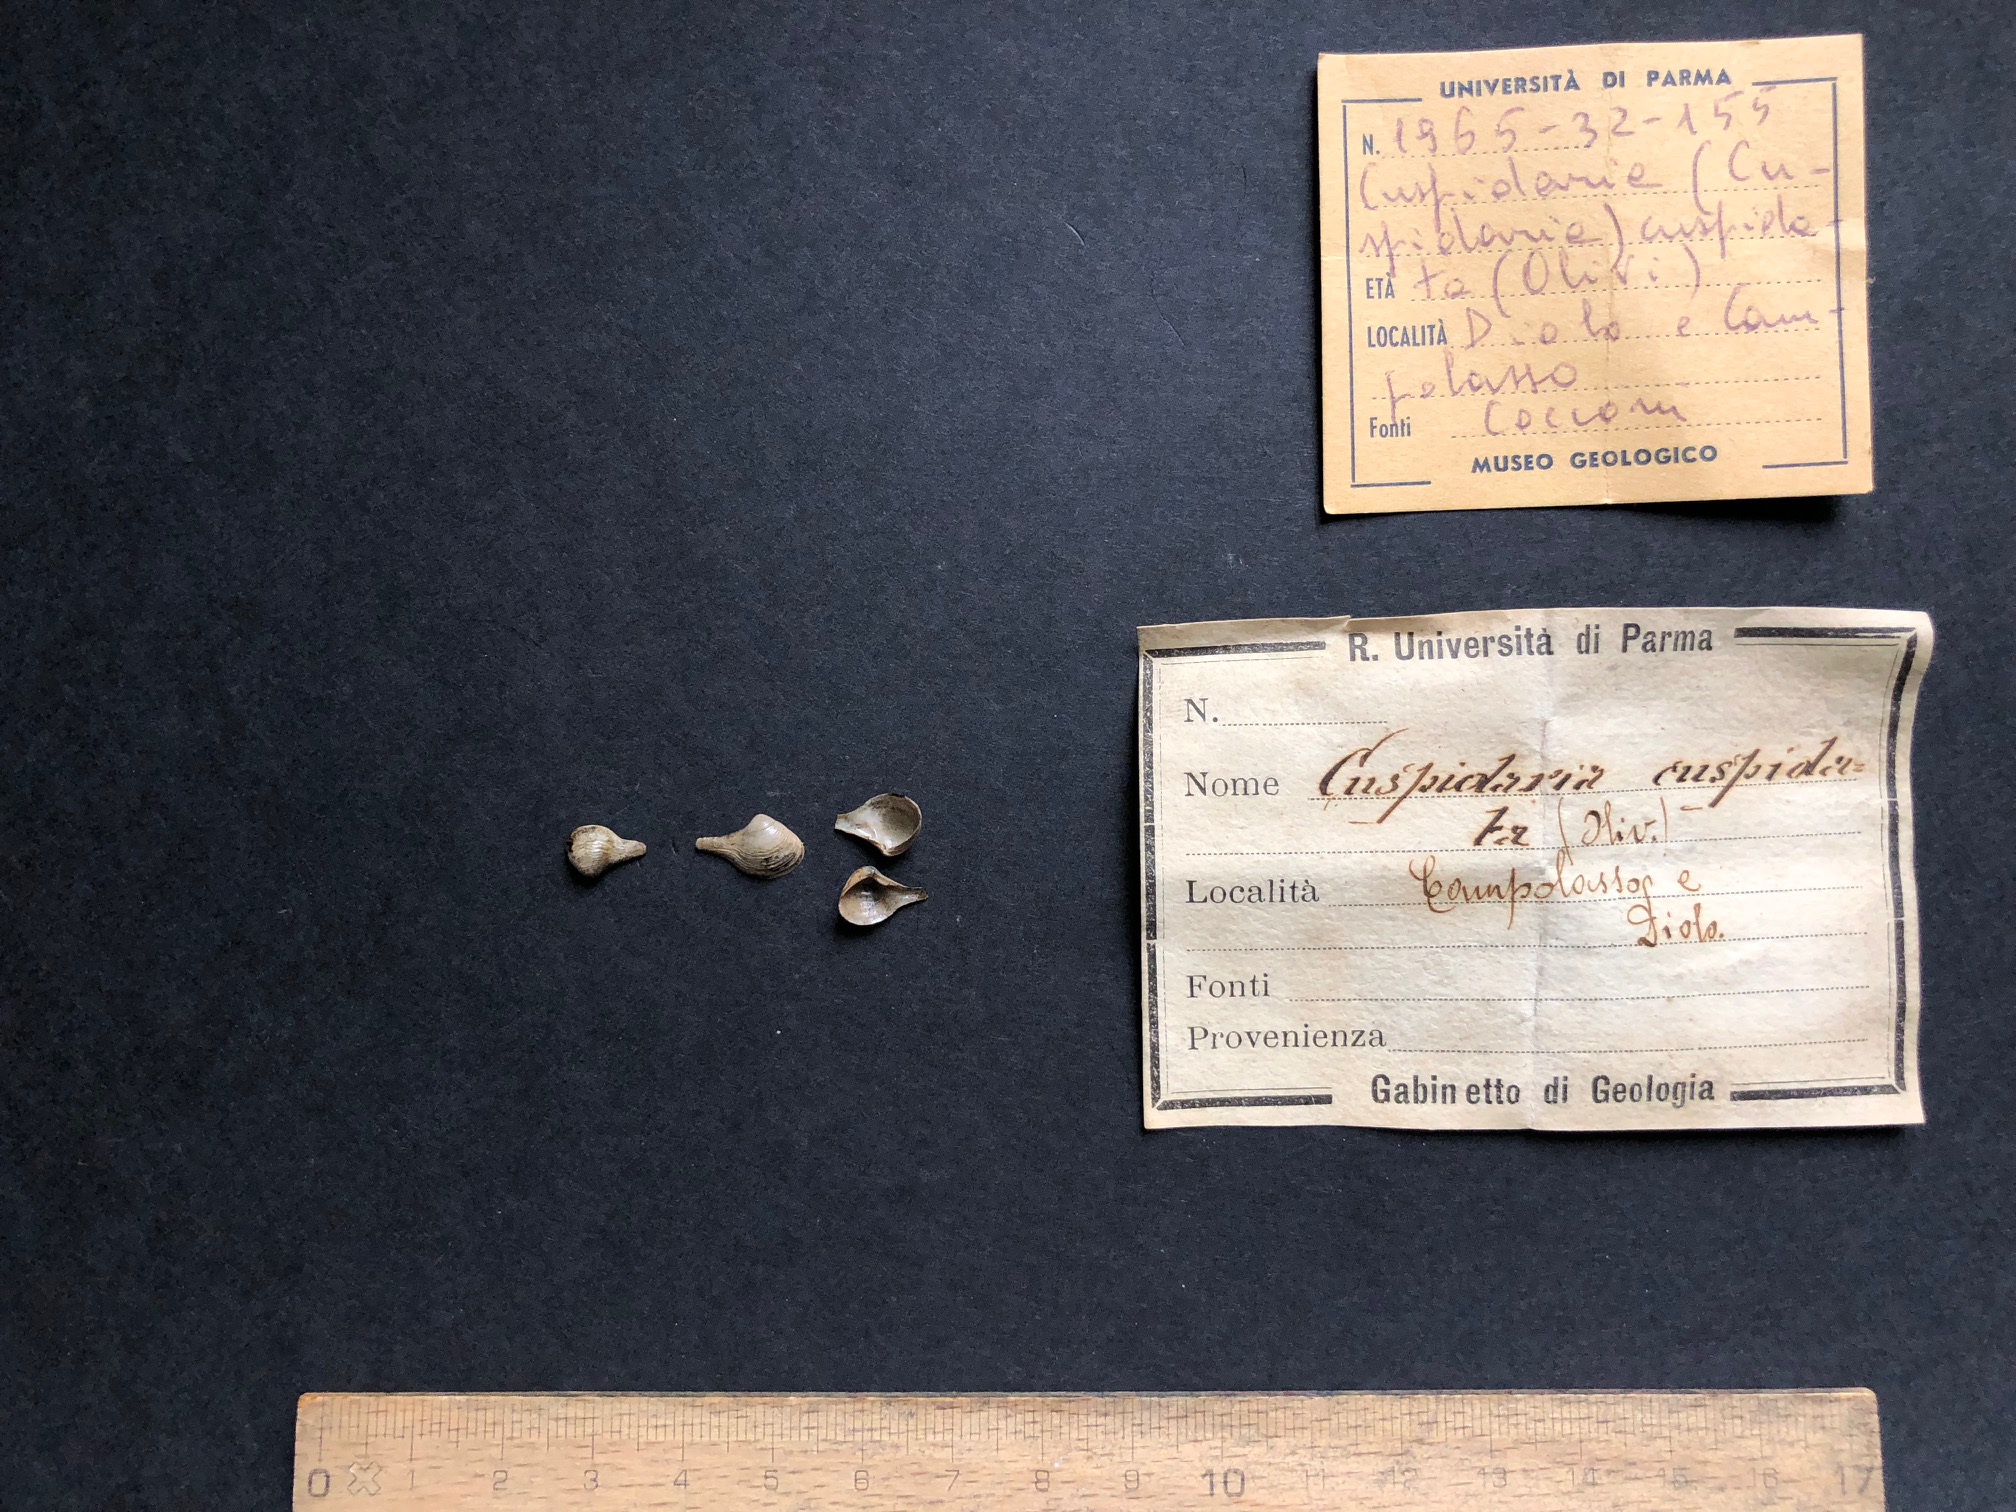 UNIVERSITÀ DI PARMA
N. 1965-32-155
Cuspidaria (Cu-
spidaria) cuspida-
ETÀ ta (Olivi)
LOCALITÀ Diolo e Cam-
polasso
Fonti Cocconi
MUSEO GEOLOGICO
R. Università di Parma
N.
Nome Cuspidaria cuspida=
ta (Oliv.)
Località Campolasso e
Diolo.
Fonti
Provenienza
Gabinetto di Geologia
0 1 2 3 4 5 6 7 8 9 10 11 12 13 14 15 16 17